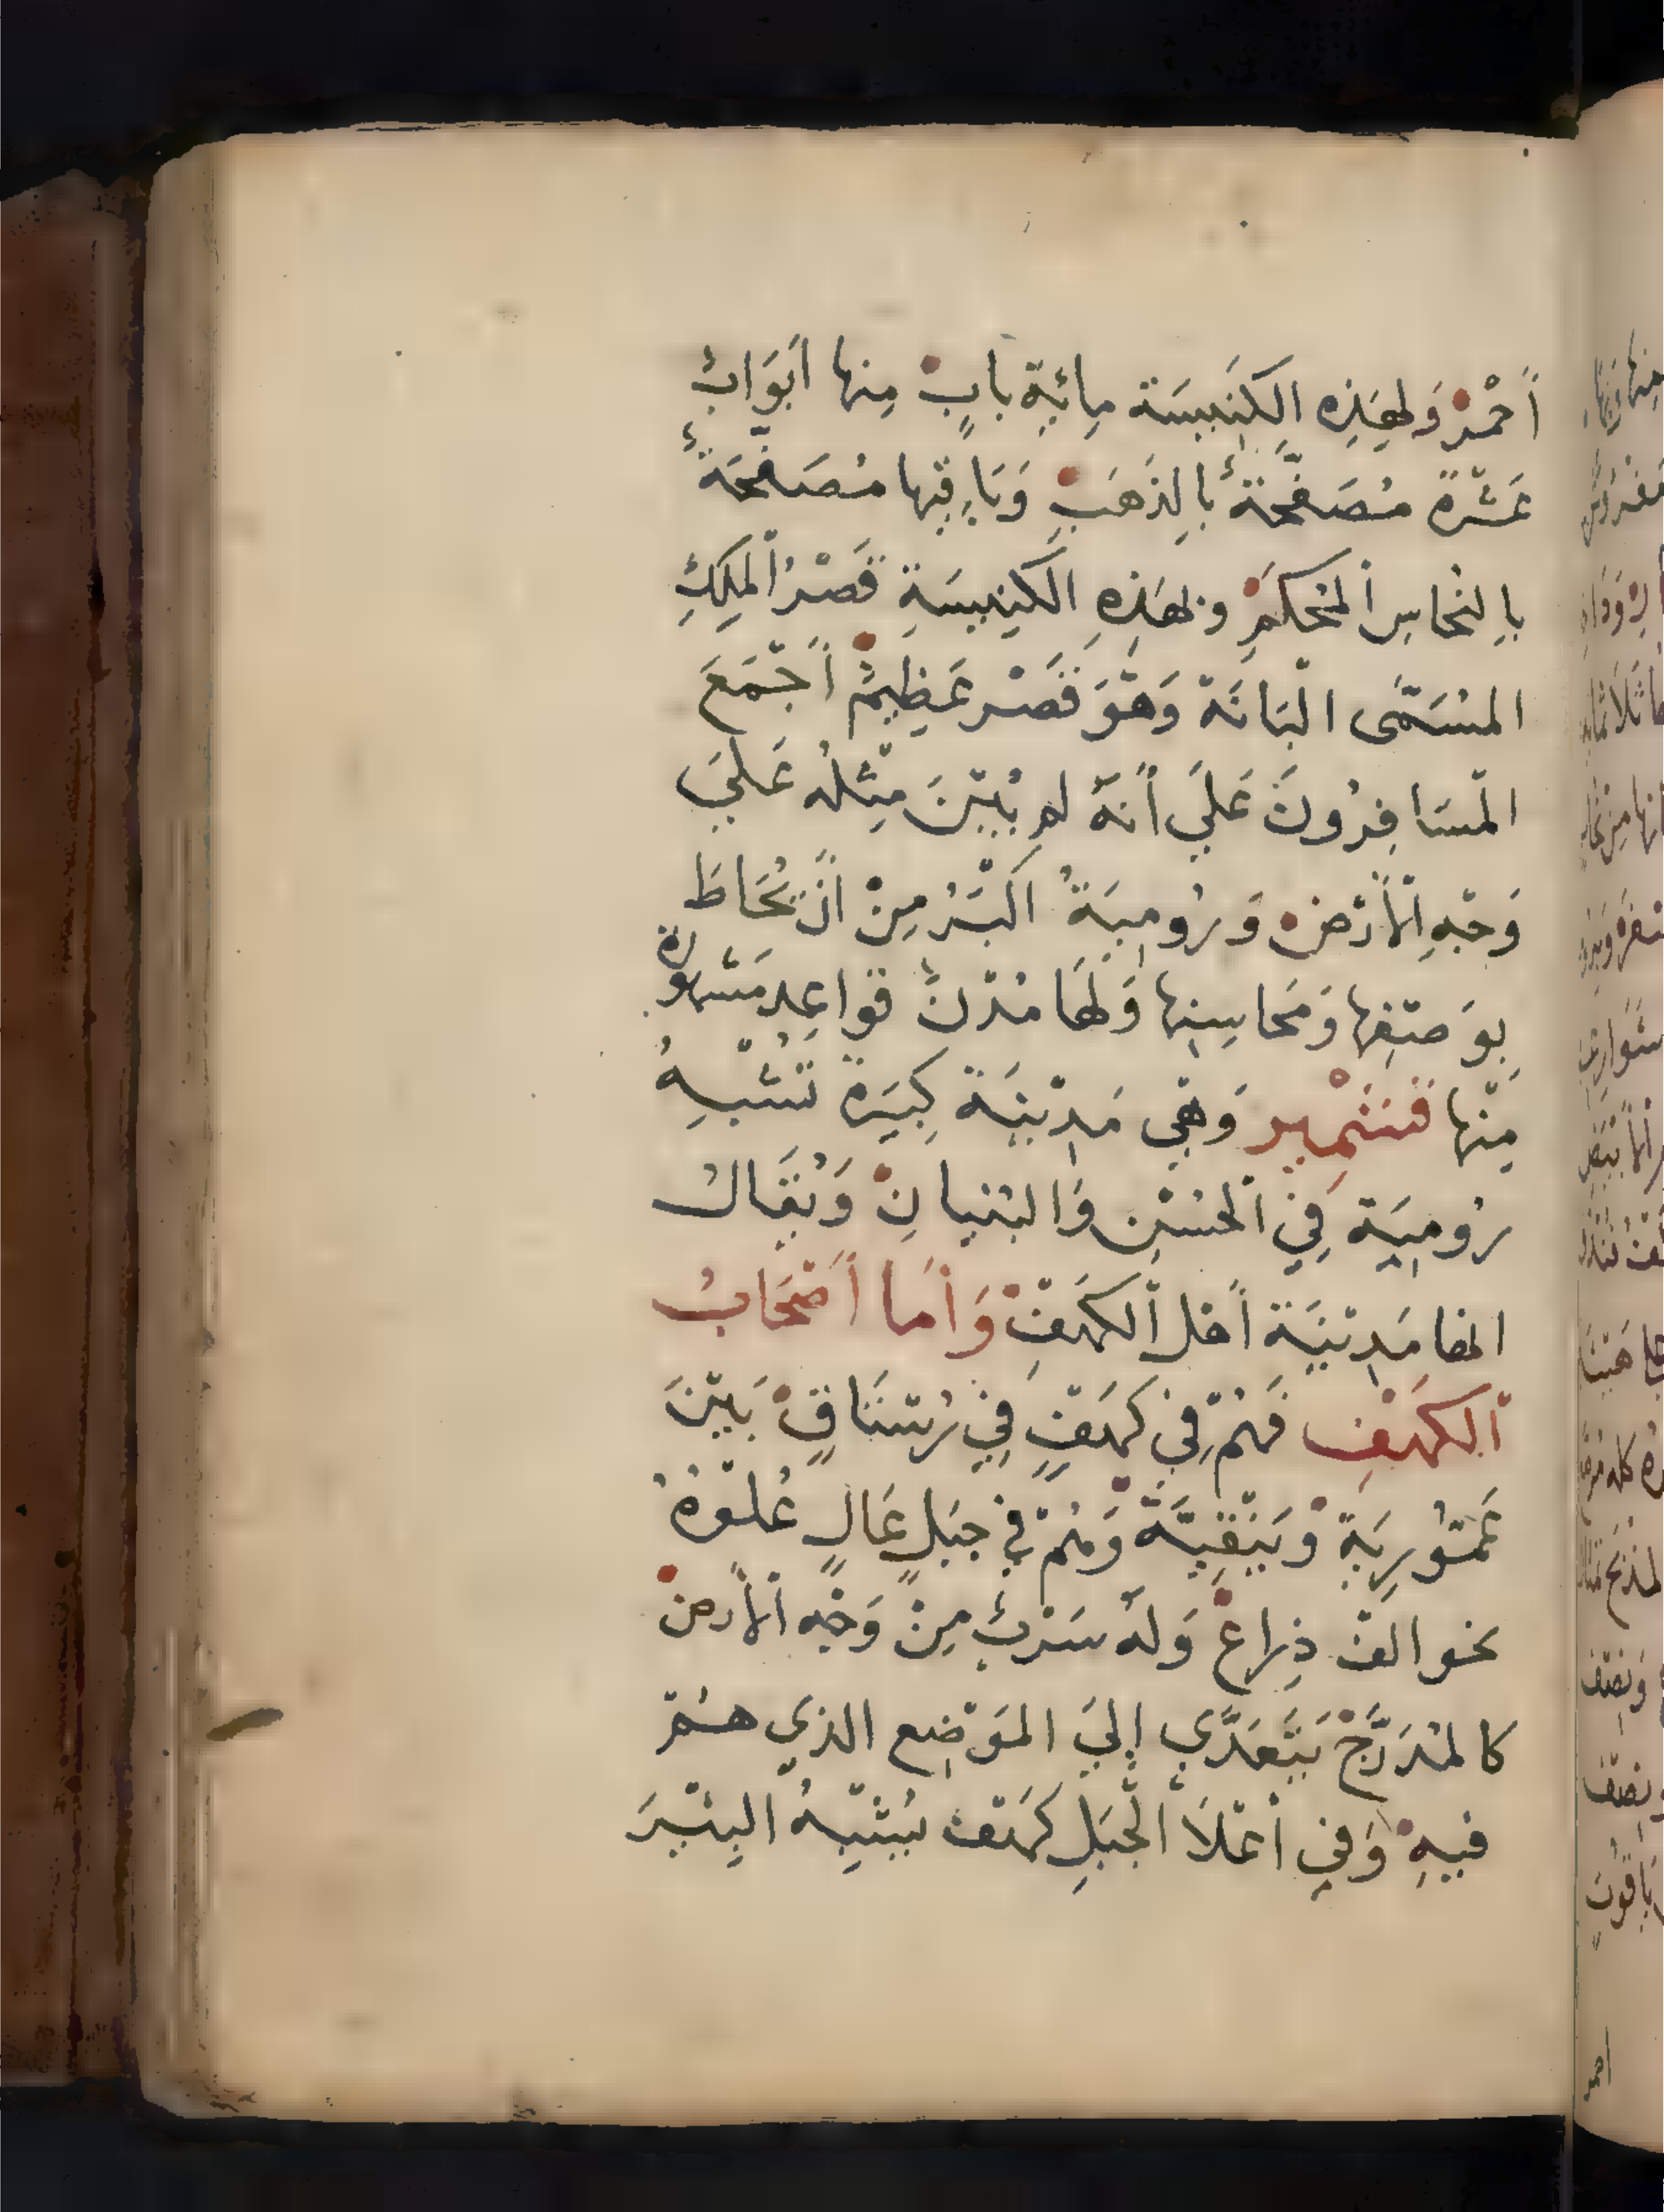 أَحْمَرْ وَلِهَذِه الكَنِيسَة مِائَة بابٍ مِنها أَبْوَابٌ
عَشْرَةٌ مُصَفَّحَةٌ بِالذَهَبِ وَبَاقِيها مُصَفَّحَةٌ
بِالنُحاسِ المُحْكَمِ وبِهَذِهِ الكَنِيسَةِ قَصْرُ المَلِكِ
المُسَمَّى البَابَة وَهْوَ قَصْر عَظِيمٌ أَجْمَعَ
المُسَافِرُونَ عَلَيَ أَنَّهُ لم يُبْنَ مِثْلُهُ عَلَيَ
وَجْهِ الأَرْضِ وَرُومِيَةُ أَكْبَرُ مِنْ أَنْ يُحَاطَ
بِوَصْفِها وَمَحاسِنِها وَلَهَا مُدْنٌ قواعِد مَشْهُورَة
مِنْها قَشْمِير وَهْيَ مَدِينَة كَبِيرَةٌ تُشْبِهُ
رُومِيَة فِي الحُسْنِ وَالبُنْيانِ وَيُقَالُ
انها مَدِينَة أَهْل الكَهْفِ وَأَمَا أَصْحَابُ
الكَهْفِ فَهُمْ فِي كَهْفٍ فِي رُسْتَاقٍ بَيْنَ
عَمُّورِيَة وَنِيقِيَّة وَهُمْ فِي جَبَلٍ عَالٍ عُلُوُّهُ
نحو الف ذِراعْ وَلَهُ سَرْبٌ مِنْ وَجْهِ الأَرضْ
كالمُدَرَّجْ يَتَعَدَّي إِليَ المَوْضِع الذي هُمْ
فيهِ وَفِي أَعْلَا الجَبَلِ كَهْف يُشْبِهُ البِئْرَ